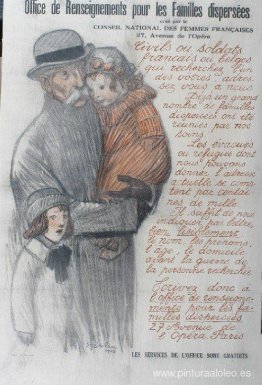 Office de Renseignements pour les Familles dispersées
créé par le
CONSEIL NATIONAL DES FEMMES FRANÇAISES
27, Avenue de l'Opéra
Civils ou soldats
français ou belges
qui recherchez l'un
des vôtres adres
sez vous a nous
Déjà un grand
nombre de familles
dispersées ont été
réunies par nos
soins.
Les évacués
ou réfugiés dont
nous pouvons
donner l'adresse
actuelle se comp
tent par centai
nes de mille
Il suffit de nous
indiquer par lettre,
bien lisiblement
le nom, les prénoms,
l'age, le domicile
avant la guerre de
la personne recherchée
Ecrivez donc à
l'office de renseigne-
ments pour les fa-
milles dispersées
27 Avenue de
l'Opéra Paris
LES SERVICES DE L'OFFICE SONT GRATUITS
www.pinturaaloleo.es